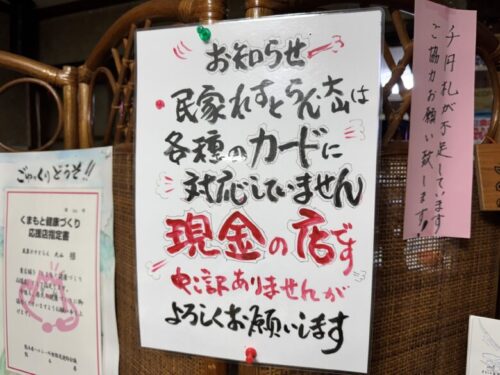 お知らせ
民家れすとらん大山は
各種のカードに
対応していません
現金の店です
申し訳ありませんが
よろしくお願いします
千円札が不足しています
ご協力お願い致します!
ごゆっくりどうぞ!!
くまもと健康づくり
応援店指定書